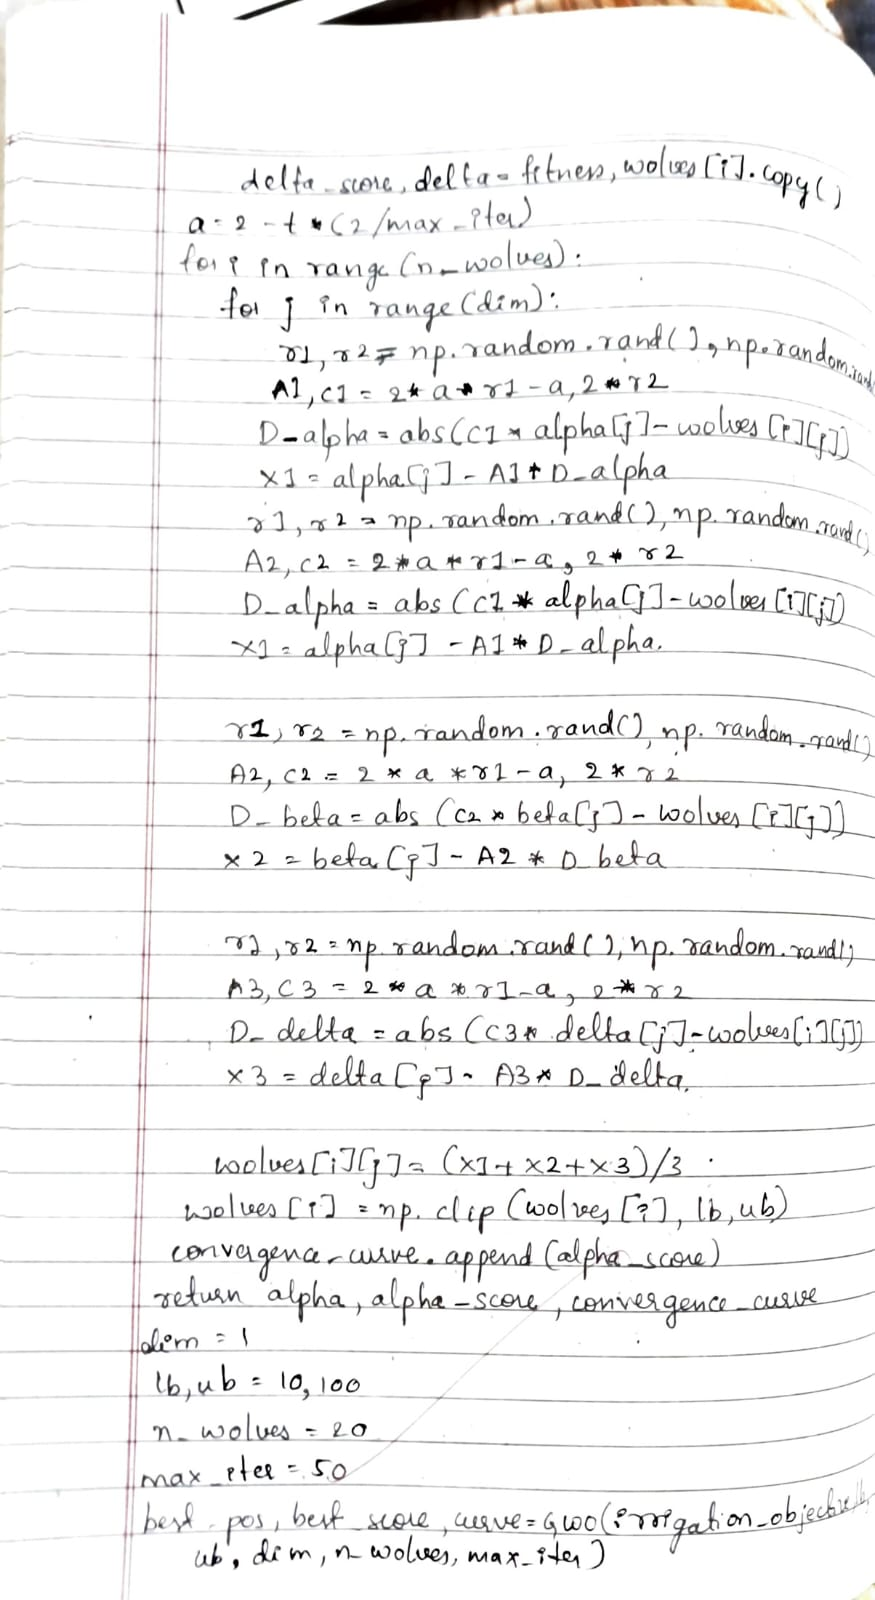 delta_score, delta = fitness, wolves[i].copy()
a = 2 - t * (2/max_iter)
for i in range(n_wolves):
for j in range(dim):
r1, r2 = np.random.rand(), np.random.rand
A1, C1 = 2 * a * r1 - a, 2 * r2
D_alpha = abs(C1 * alpha[j] - wolves[i][j])
X1 = alpha[j] - A1 * D_alpha
r1, r2 = np.random.rand(), np.random.rand()
A2, C2 = 2 * a * r1 - a, 2 * r2
D_alpha = abs(C1 * alpha[j] - wolves[i][j])
X1 = alpha[j] - A1 * D_alpha.
r1, r2 = np.random.rand(), np.random.rand()
A2, C2 = 2 * a * r1 - a, 2 * r2
D_beta = abs(C2 * beta[j] - wolves[i][j])
X2 = beta[j] - A2 * D_beta
r1, r2 = np.random.rand(), np.random.rand()
A3, C3 = 2 * a * r1 - a, 2 * r2
D_delta = abs(C3 * delta[j] - wolves[i][j])
X3 = delta[j] - A3 * D_delta.
wolves[i][j] = (X1 + X2 + X3)/3.
wolves[i] = np.clip(wolves[i], lb, ub)
convergence_curve.append(alpha_score)
return alpha, alpha_score, convergence_curve
dim = 1
lb, ub = 10, 100
n_wolves = 20
max_iter = 50
best_pos, best_score, curve = GWO(irrigation_objective, lb,
ub, dim, n_wolves, max_iter)